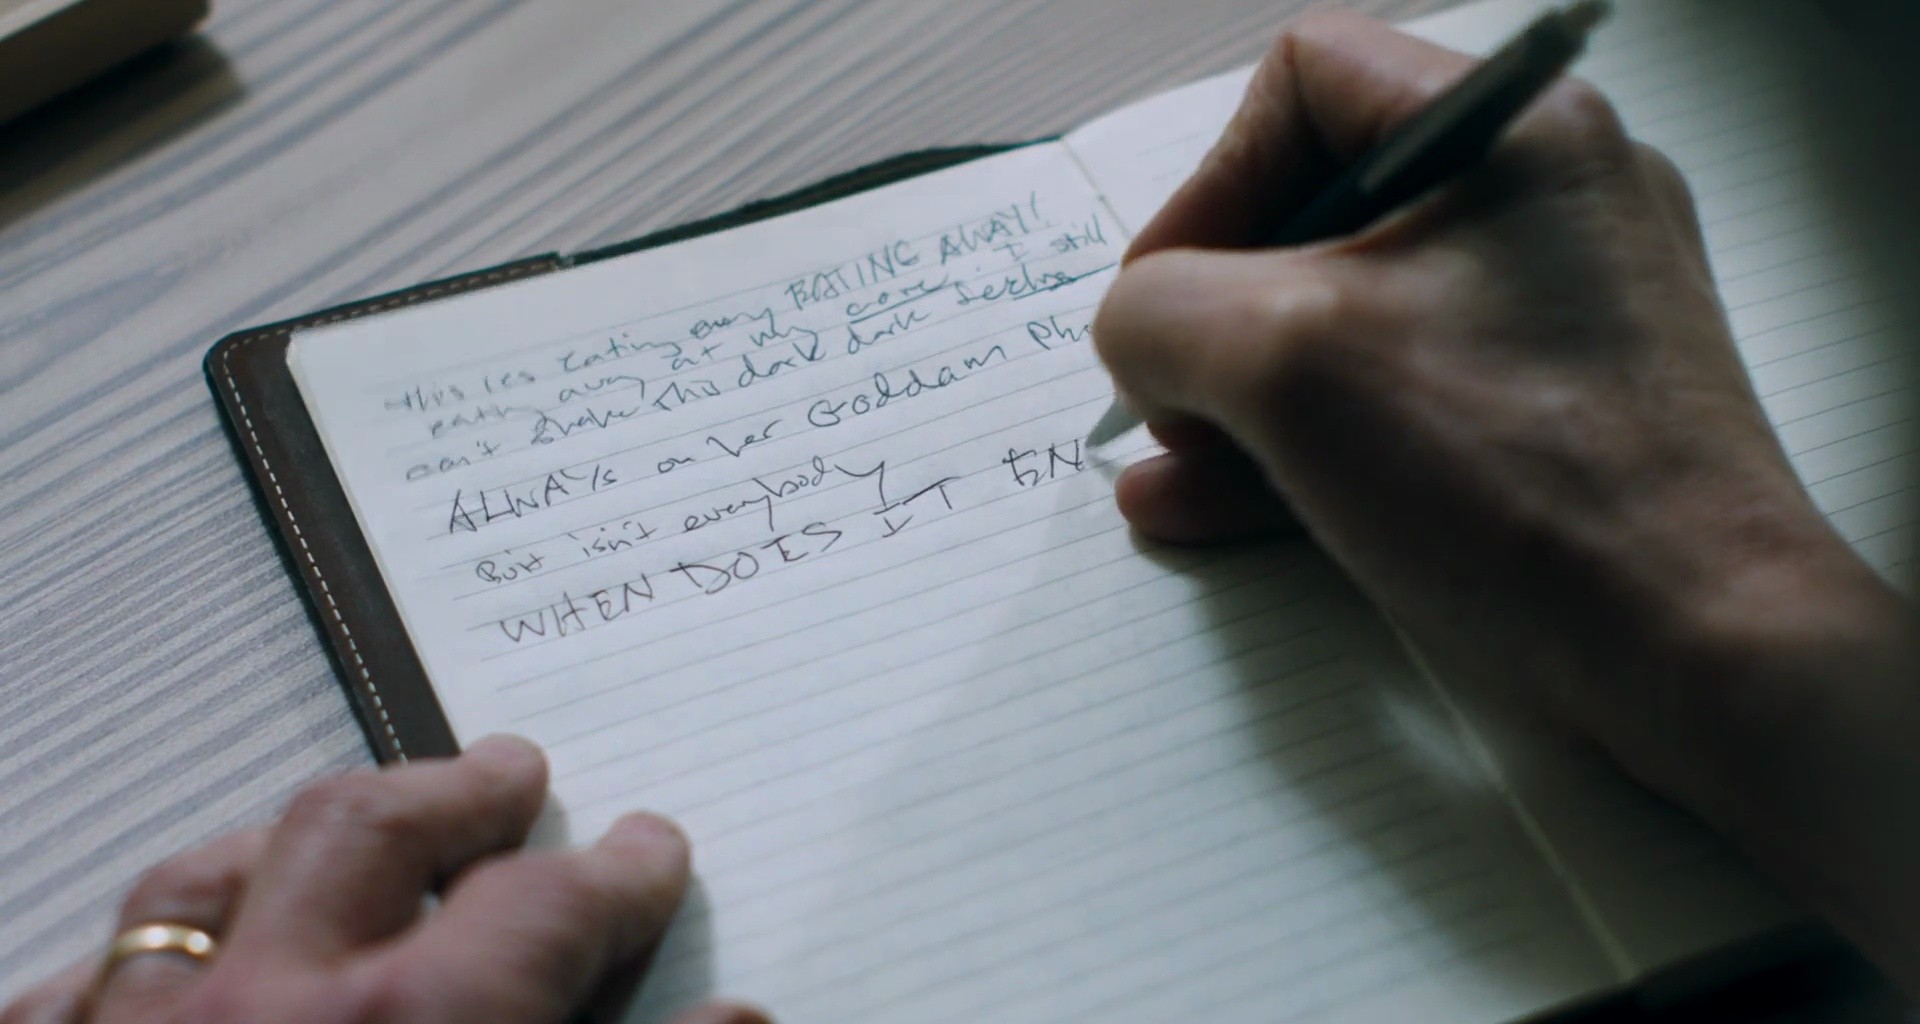 this is eating away EATING AWAY!
away at my core. I still
can't shake this dark dark
ALWAYS on her Goddam Pho
But isn't everybody
WHEN DOES IT EN